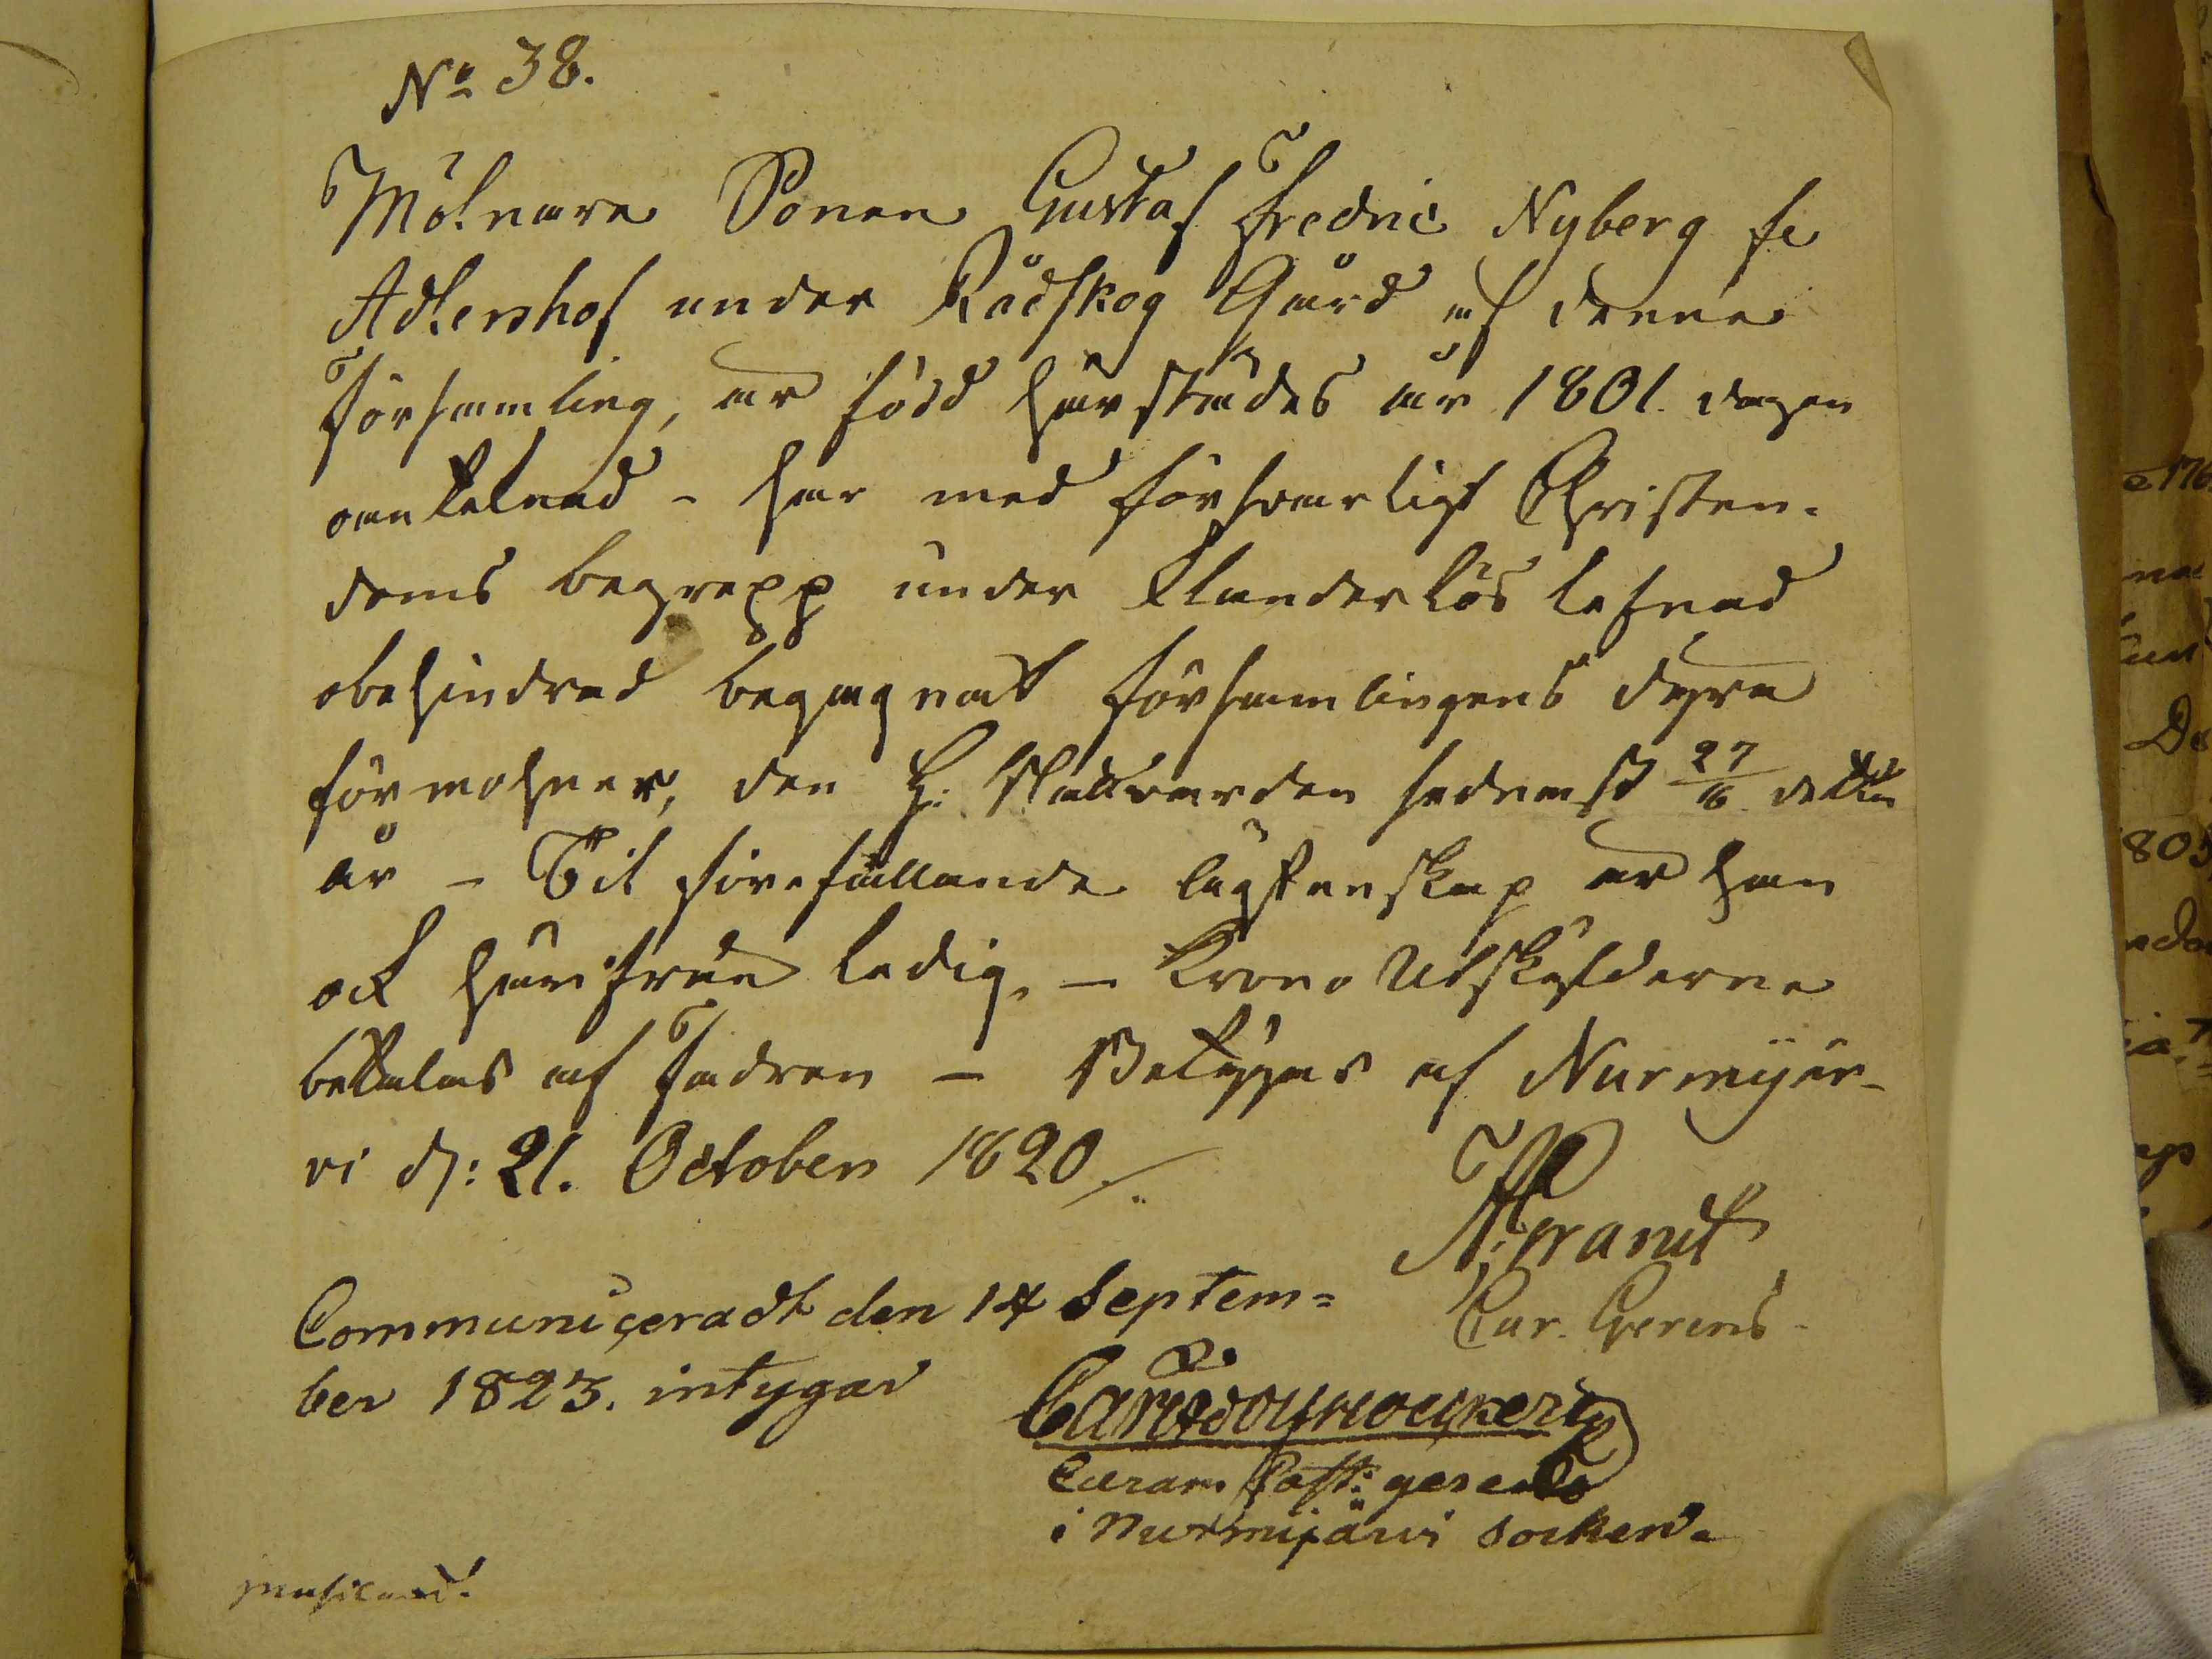 No 38.
Mölnare Sonen Gustaf Fredric Nyberg fr
Adlershof under Rådskog Gård af denna
Församling, är född härstädes år 1801. dagen
oanteknad - har med försvarligt Christen-
doms begrepp under klanderlös lefnad
obehindrad begagnat församlingens dyra
förmohner, den H: Nattvarden sednast 27/6 detta
år - Til förefallande ägtenskap är han
ock härifrån ledig. - Krono Utskylderne
betalas af Fadren - Betygar af Nurmijer-
vi d: 21. October 1820
Cur. Gerens
Communiceradt den 14 Septem=
ber 1823. intygar
Curam Past: gerens
i Nurmijärvi Socken